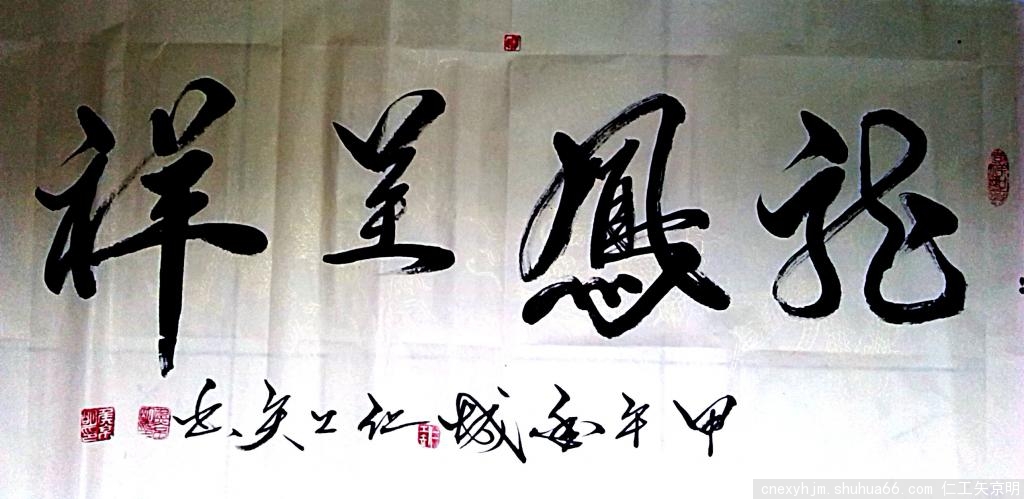 龍鳳呈祥
甲午 城仁工矣书
cnexyhjm shuhua66.com 仁工矢京明